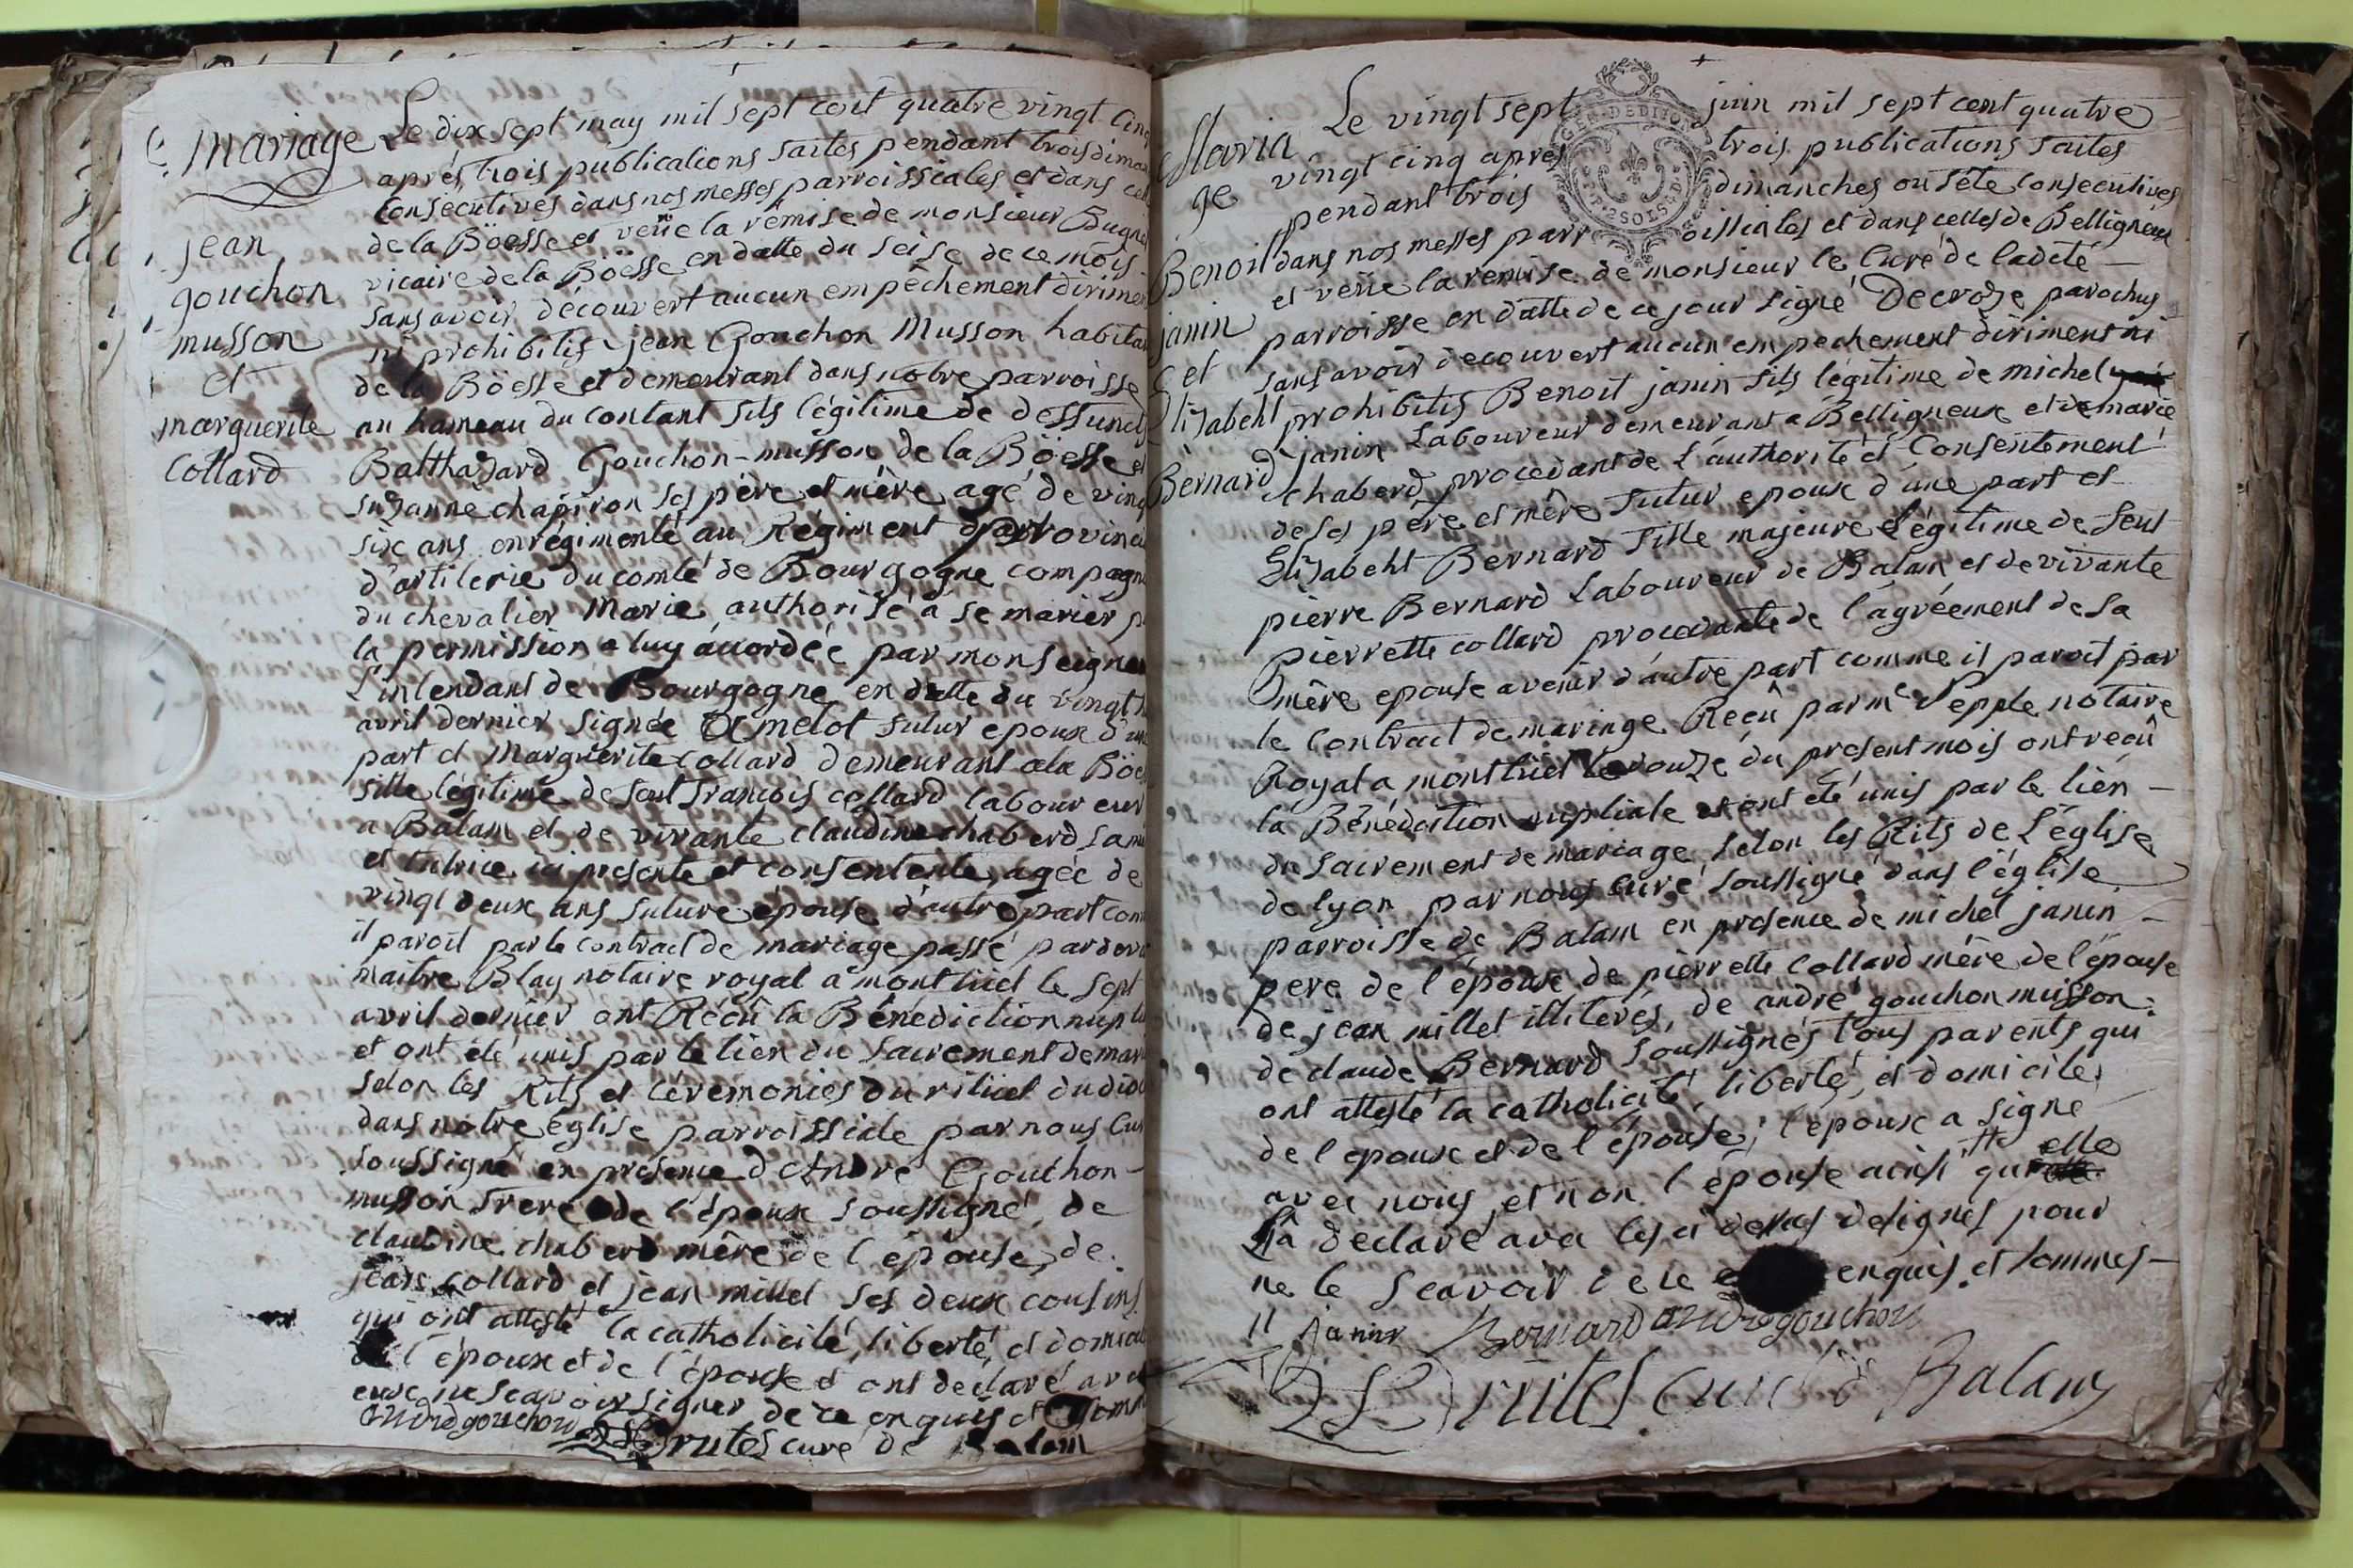 mariage
jean
gouchon
musson
et
marguerite
Collard
Le dix sept may mil sept cent quatre vingt cinq
après trois publications faites pendant trois diman
consecutives dans nos messes parroissiales et dans cel
de la Böesse et veüe la remise de monsieur Bugn
vicaire de la Böesse en datte du seise de ce mois
sans avoir découvert aucun empêchement dirimen
ni prohibitif jean Gouchon Musson habitan
de la Böesse et demeurant dans notre parroisse
au hameau du contant fils légitime de deffuncts
Balthazard Gouchon-musson de la Böesse et
suzanne chapiron ses père et mère agé de vingt
six ans enrégimenté au Régiment provinci
d'artilerie du comté de Bourgogne compagn
du chevalier Marie, authorisé a se marier p
la permission a luy accordée par monseigneu
L'intendant de Bourgogne en datte du vingt
avril dernier signée Amelot futur epoux d'une
part et Marguerite collard demeurant ala Böe
fille légitime de feut françois collard laboureur
a Balam et de vivante claudine chaberd sa m
et tutrice ici presente et consentente, agée de
vingt deux ans future épouse d'autre part com
il paroit par le contract de mariage passé pardev
maitre Blay notaire royal a montluel le sept
avril dernier ont Réçû la Bénédiction nupti
et ont été unis par le lien du sacrement de mari
selon les Rits et céremonies du rituel du dio
dans notre église parroissiale par nous Cur
soussigné en presence d'André Gouchon-
musson frere de l'époux soussigné, de
claudine chaberd mère de l'épouse, de
jean collard et jean millet ses deux cousins
qui ont attesté la catholicité, liberté, et domici
de l'époux et de l'épouse et ont déclaré avec
eux ne scavoir signer de ce enquis et somm
andre gouchon Brutes curé de Balam
Maria
ge
Benoit
janin
et
Elisabeht
Bernard
Le vingt sept juin mil sept cent quatre
vingt cinq après trois publications faites
pendant trois dimanches ou fête consecutives
dans nos messes parroissiales et dans celles de Belligneux
et veüe la remise de monsieur le Curé de ladete
parroisse en datte de ce jour signé Decroze parochus
sans avoir decouvert aucun empechement diriment ni
prohibitif Benoit janin fils légitime de michel
janin Laboureur demeurant a Belligneux et de marie
chaberd, procedant de L'authorité et Consentement
de ses père et mère futur epoux d'une part et
Elisabeht Bernard fille majeure Légitime de feut
pièrre Bernard Laboureur de Balam et de vivante
pierrette collard procedante de l'agréement de sa
mère epouse avenir d'autre part comme il paroit par
le contract de mariage Reçû par me Pepple notaire
Royal a montluel le douze du present mois ont recû
la Bénédiction nuptiale et ont été unis par le lien
du sacrement de mariage selon les Rits de L'église
de lyon par nous curé soussigné dans l'église
parroisse de Balam en presence de michel janin
pere de l'époux de pierrette Collard mère de l'épouse
de jean millet illiterés, de andré gouchon musson
de claude Bernard soussignés tous parents qui
ont attesté la catholicité, liberté, et domicile
de l epoux et de l'épouse; l'epoux a signé
avec nous, et non l'épouse ainsi qu elle
L'a déclaré avec les ci dessus designés pour
ne le scavoir de ce enquis. et sommes
janin Bernard andre gouchon
Brutes curé de Balam
GEN. DE DIJON
2 SOLS